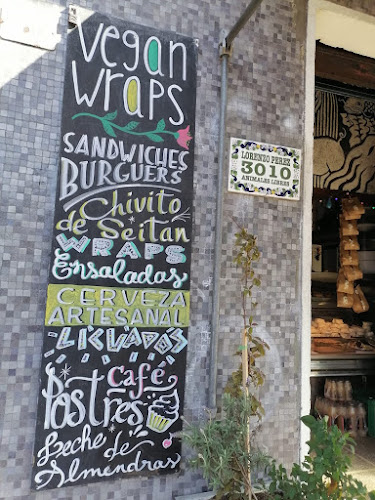 vegan
wraps
SANDWICHES
BURGUERS
Chivito
de Seitan
WRAPS
Ensaladas
CERVEZA
ARTESANAL
LICUADOS
Café
Postres
Leche de
Almendras
LORENZO PEREZ
3010
ANIMALES LIBRES